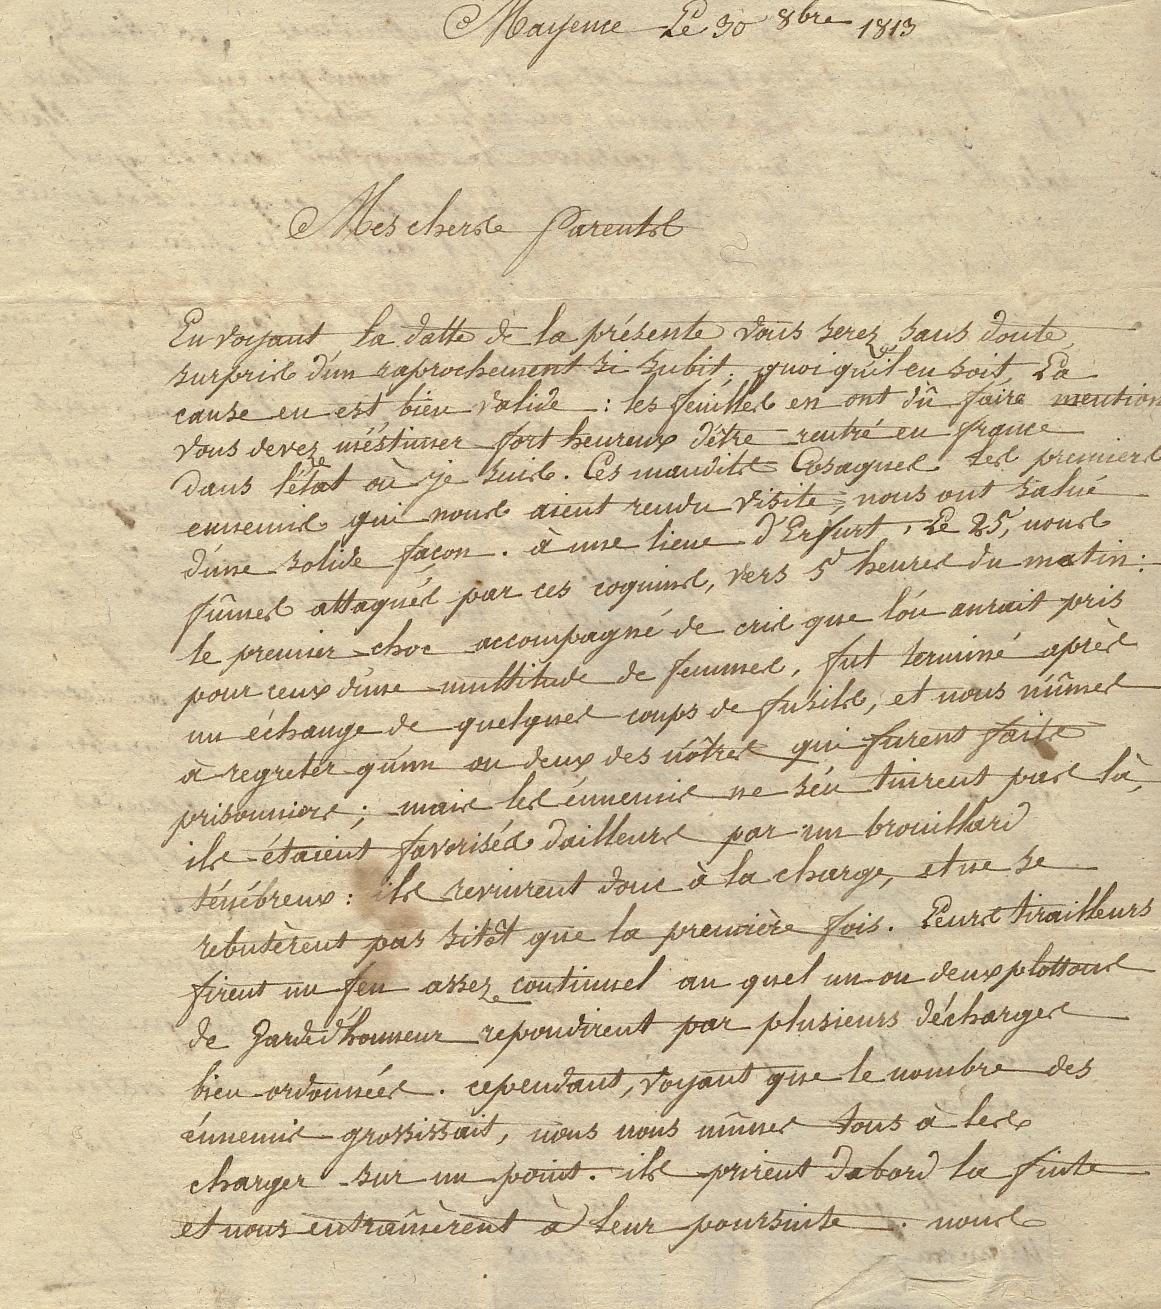 Mayence Le 30 8bre 1813
Mes chers Parents
En voyant la datte de la présente vous serez sans doute
surpris d'un raprochement si subit. quoi qu'il en soit, La
cause en est bien valide : les feuilles en ont dû faire mention
vous devez m'éstimer fort heureux d'être rentré en france
dans l'état où je suis. Ces maudits Cosaques les premiers
ennemis qui nous aient rendu visite, nous ont salué
d'une solide façon. à une lieue d'Erfurt, Le 25, nous
fûmes attaqués par ces coquins, vers 5 heures du matin :
le premier choc accompagné de cris que l'on aurait pris
pour ceux d'une multitude de femmes, fut terminé après
un échange de quelques coups de fusils, et nous n'eûmes
à regreter qu'un ou deux des nôtres qui furent faits
prisonniers ; mais les énnemis ne s'en tinrent pas là,
ils étaient favorisés d'ailleurs par un brouillard
ténébreux : ils revinrent donc à la charge, et ne se
rebutèrent pas sitôt que la première fois. Leurs tirailleurs
firent un feu assez continuel au quel un ou deux plottons
de Garde d'honneur repondirent par plusieurs décharges
bien ordonnées. cependant, voyant que le nombre des
énnemis grossissait, nous nous mîmes tous à les
charger sur un point. ils prirent dabord la fuite
et nous entraînèrent à leur poursuite. nous